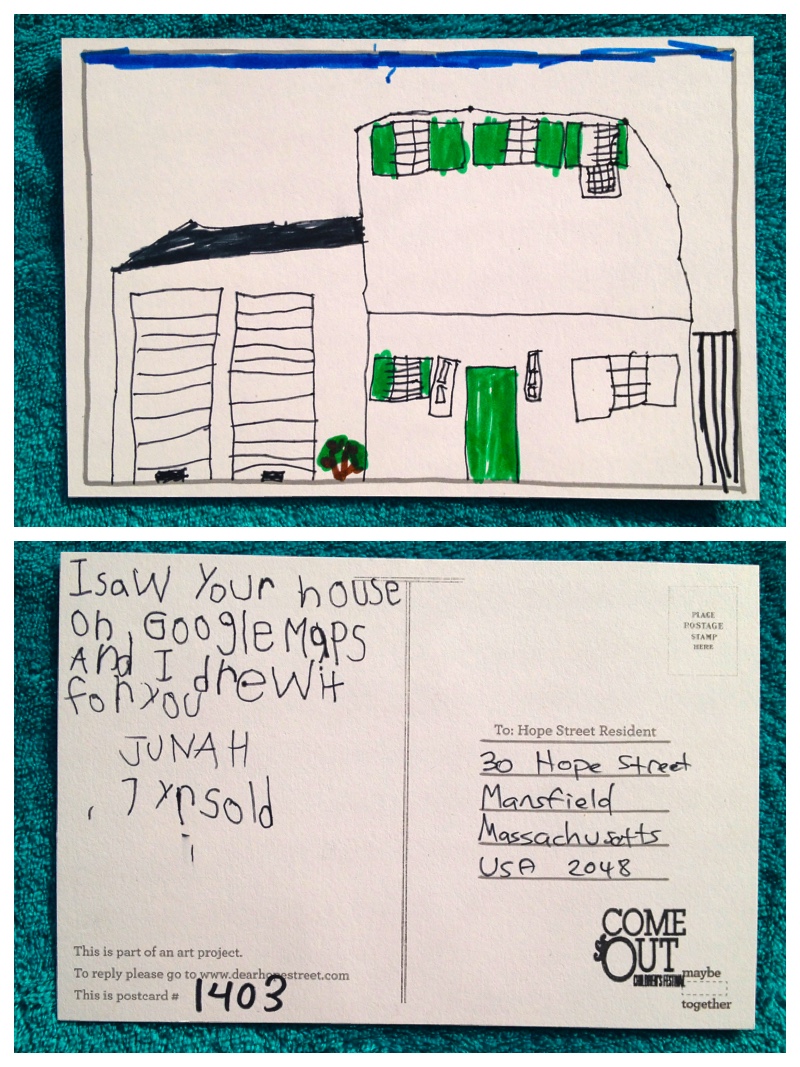 I saw Your house
on Google Maps
And I drew it
for you
JUNAH
7 yrs old
This is part of an art project.
To reply please go to www.dearhopestreet.com
This is postcard # 1403
PLACE
POSTAGE
STAMP
HERE
To: Hope Street Resident
30 Hope Street
Mansfield
Massachusetts
USA 2048
COME
OUT
CHILDREN'S FESTIVAL
maybe
together